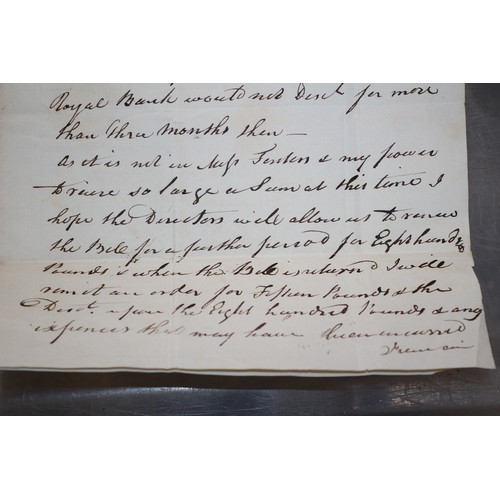 Royal Bank would not Disct for more
than three months then —
As it is not in Mrs & my power
to raise so large a Sum at this time I
hope the Directors will allow us to renew
the Bill for a further period for Eight hundd
Pounds & when the Bill is returned I will
remit an order for Fifteen Pounds & the
Disct upon the Eight hundred Pounds & any
expences that may have been incurred
I remain